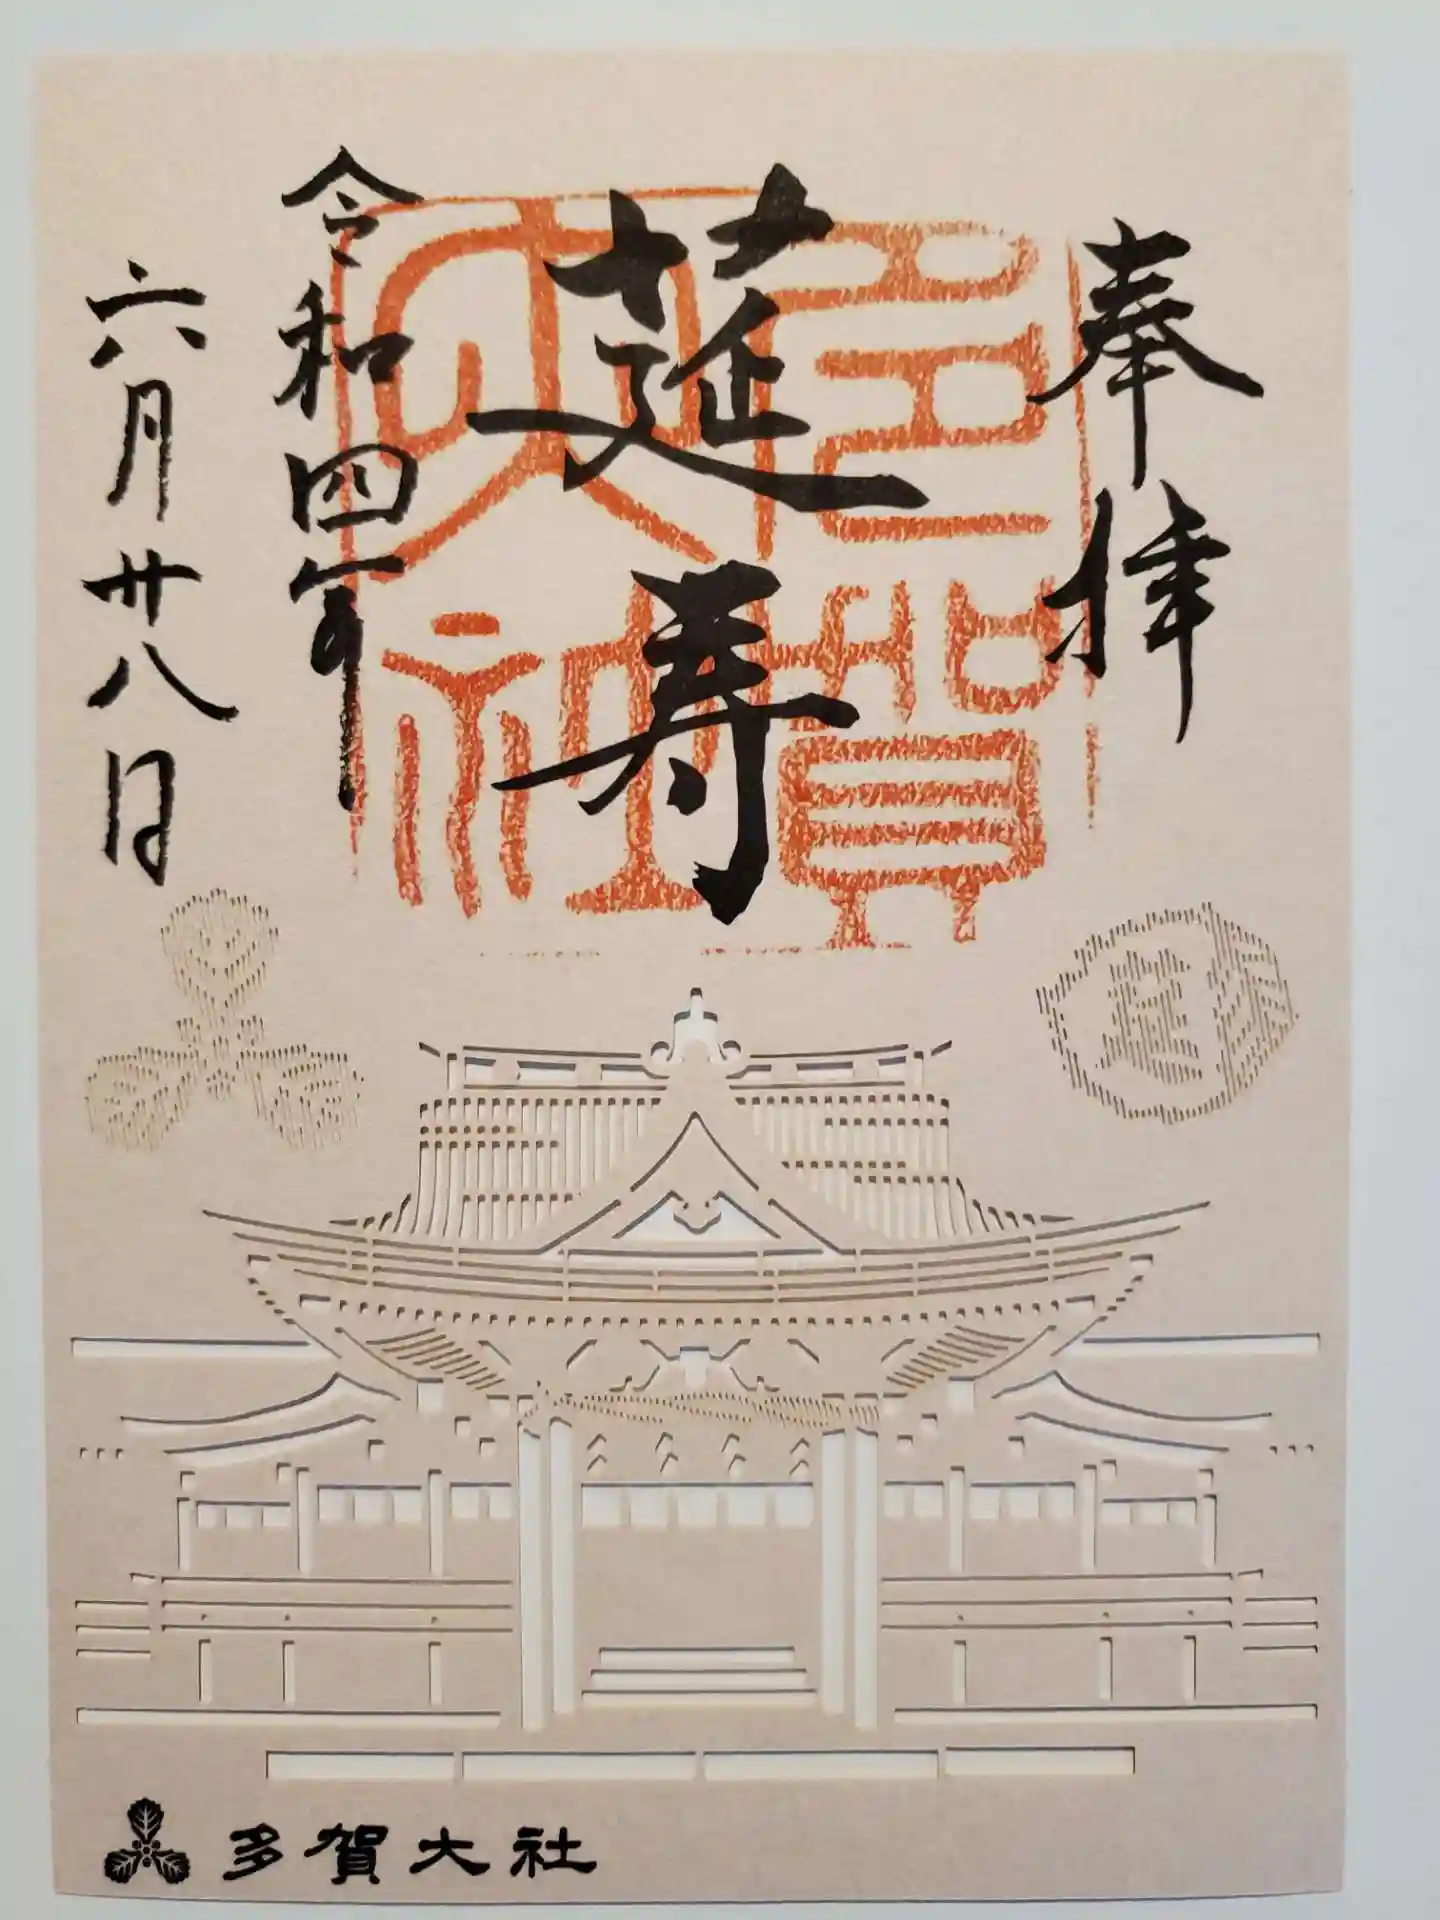 奉拝
延寿
令和四年
六月廿八日
多賀大社
多賀大社